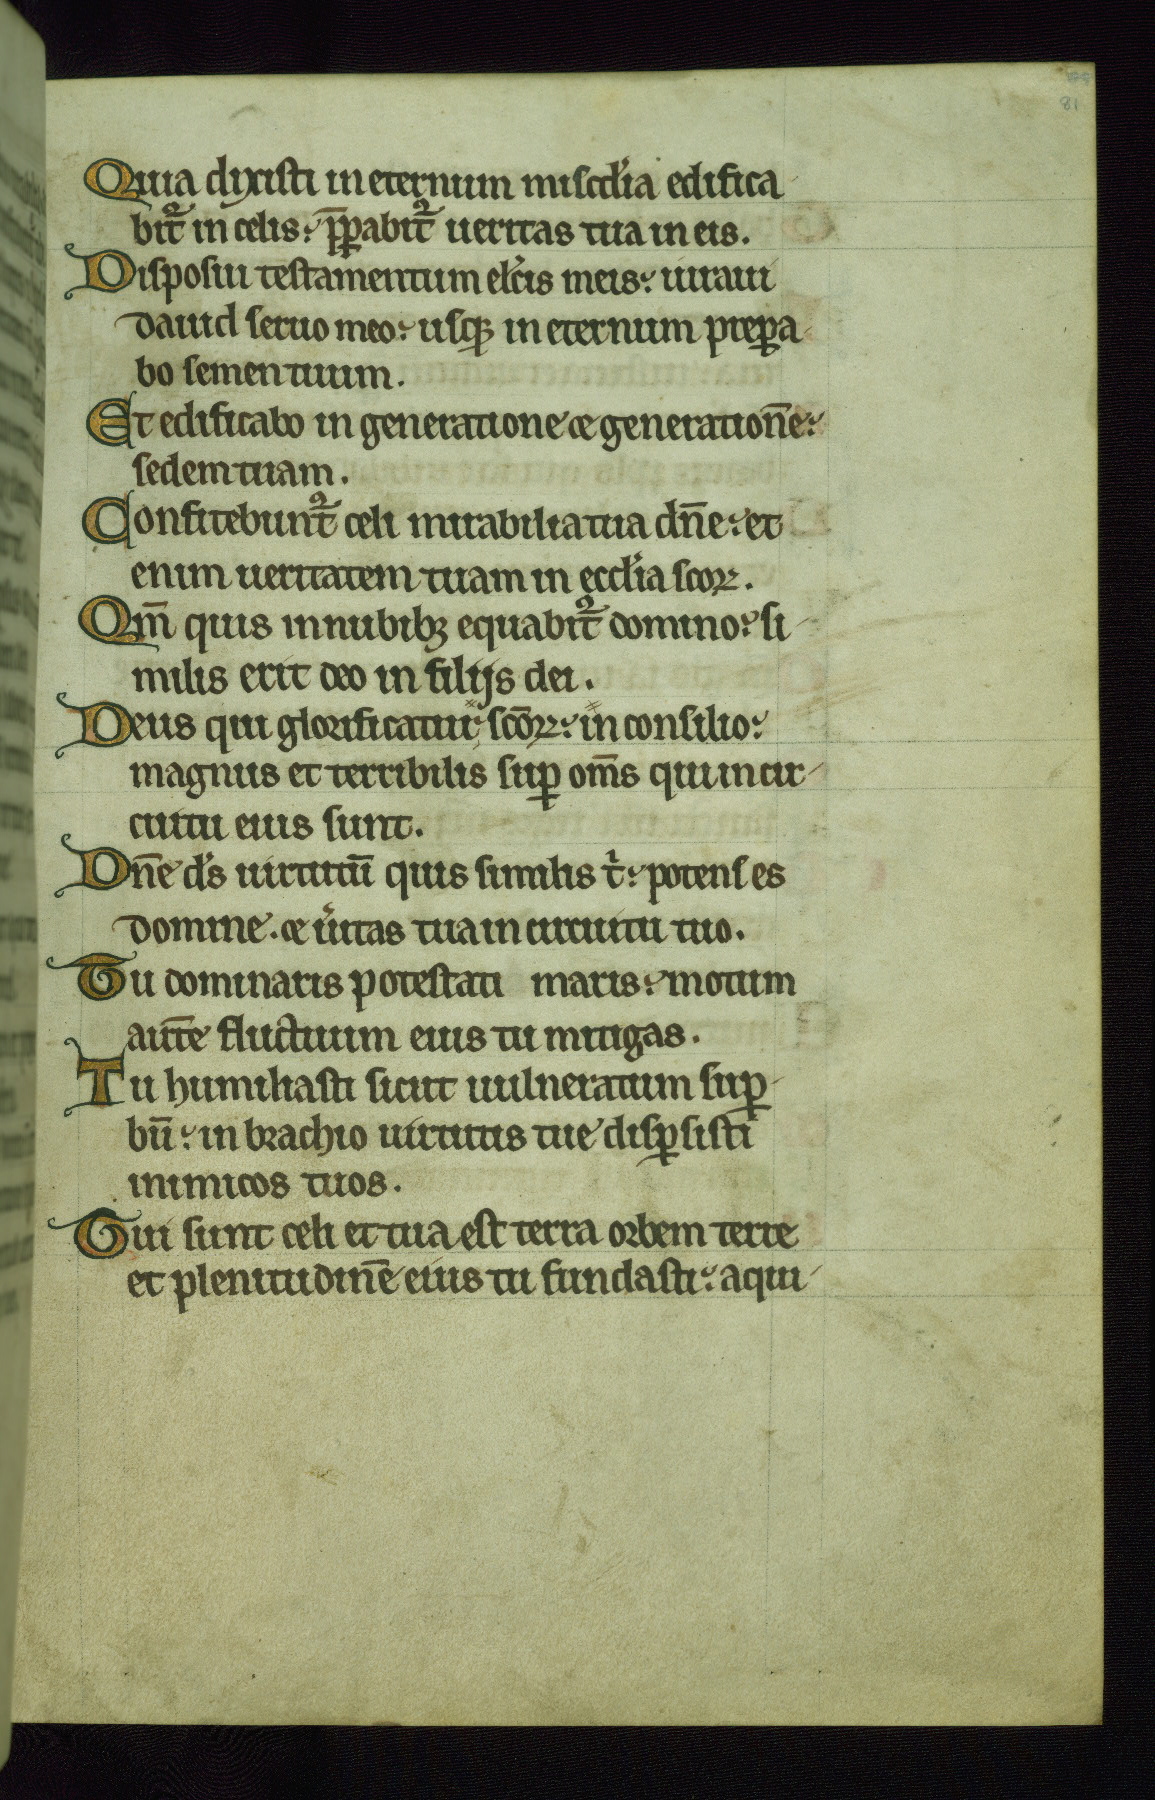 81
Quia dixisti in eternum miscd'ia edifica
bit᷑ in celis: p̄pabit᷑ ueritas tua in eis.
Disposui testamentum elc̄is meis: iuraui
dauid seruo meo: usq; in eternum prepa
bo semen tuum.
Et edificabo in generatione et generationē:
sedem tuam.
Confitebunt᷑ celi mirabilia tua dn̄e: et
enim ueritatem tuam in eccl'ia scoꝝ.
Qm̄ quis in nubibꝫ equabit᷑ domino: si
milis erit deo in filijs dei.
Deus qui glorificatur scōꝝ: in consilio:
magnus et terribilis suꝑ om̄s qui in cir
cuitu eius sunt.
Dn̄e d's uirtutū quis similis t': potens es
domine. et u'itas tua in circuitu tuo.
Tu dominaris potestati maris: motum
autē fluctuum eius tu mitigas.
Tu humiliasti sicut uulneratum suꝑ
bū: in brachio uirtutis tue disꝑsisti
inimicos tuos.
Tui sunt celi et tua est terra orbem terre
et plenitudinē eius tu fundasti: aqui